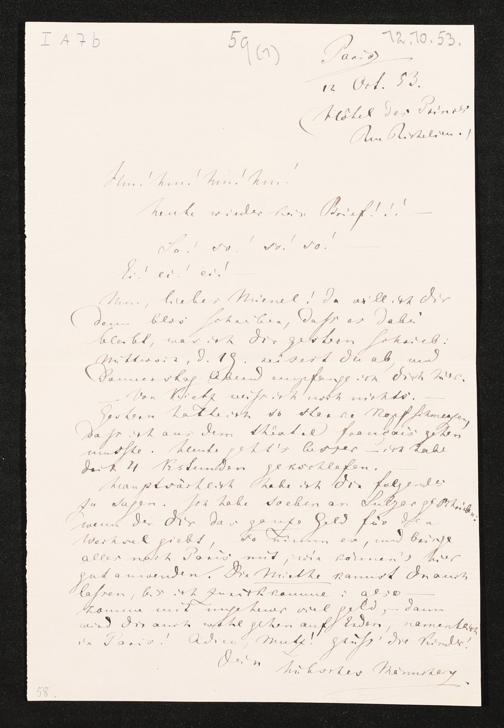 I A 7 b
59 (1)
12.10.53.
Paris
12 Oct. 53.
(Hôtel des Princes
Rue Richelieu.)
Hm! hm! hm! hm!
heute wieder kein Brief!!! —
So! so! so! so! —
Ei! ei! ei! —
Nun, lieber Mienel! Da will ich Dir
denn blos schreiben, dass es dabei
bleibt, was ich Dir gestern schrieb:
Mittwoch, d. 19. reisest du ab, und
Donnerstag Abend empfange ich dich hier.
— Von Kietz weiss ich noch nichts. —
Gestern hatte ich so starke Kopfschmerzen,
dass ich aus dem théatre français gehen
musste. Heute geht's besser — ich habe
dort 4 Stunden geschlafen. —
Hauptsächlich habe ich dir folgendes
zu sagen. Ich habe soeben an Sulzer geschrieben:
wenn der Dir das ganze Geld für den
Wechsel giebt, so nimm es, und bringe
alles nach Paris mit, wir können's hier
gut anwenden. Die Miethe kannst Du auch
lassen, bis ich zurückkomme: also —
komme mit ungeheuer viel Geld, — dann
wird Dir auch wohl gehen auf Erden, namentlich
in Paris! Adieu, Mutz! Grüss' die Kinder!
Dein
hübsches Männchen.
58.